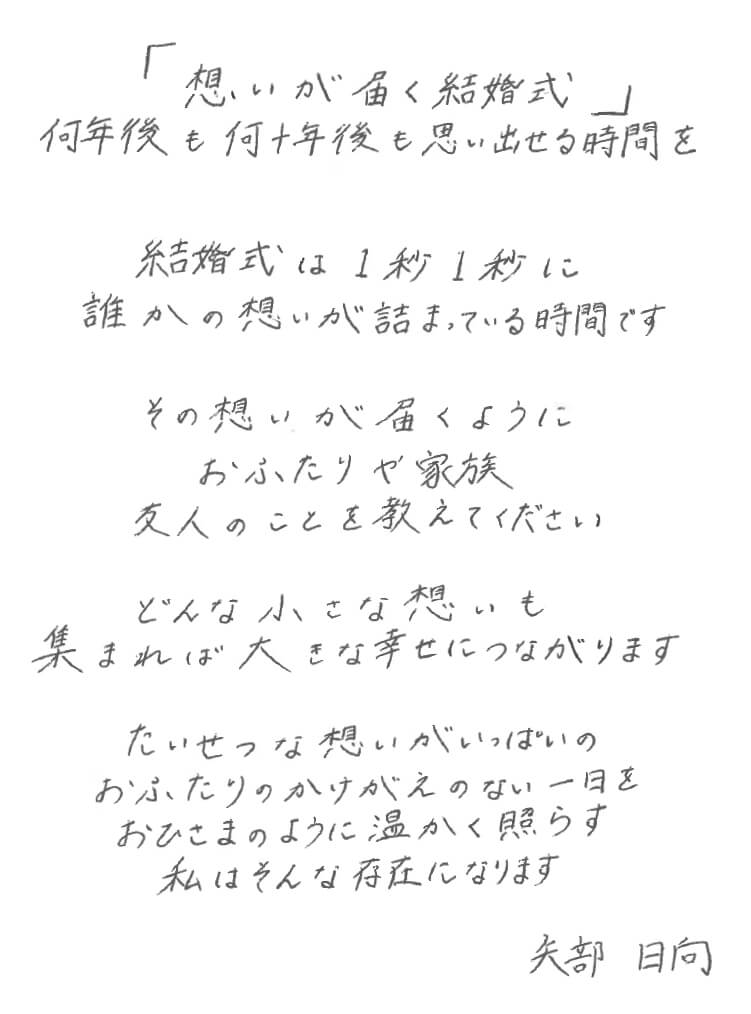 「想いが届く結婚式」
何年後も何十年後も思い出せる時間を
結婚式は1秒1秒に
誰かの想いが詰まっている時間です
その想いが届くように
おふたりや家族
友人のことを教えてください
どんな小さな想いも
集まれば大きな幸せにつながります
たいせつな想いがいっぱいの
おふたりのかけがえのない一日を
おひさまのように温かく照らす
私はそんな存在になります
矢部 日向